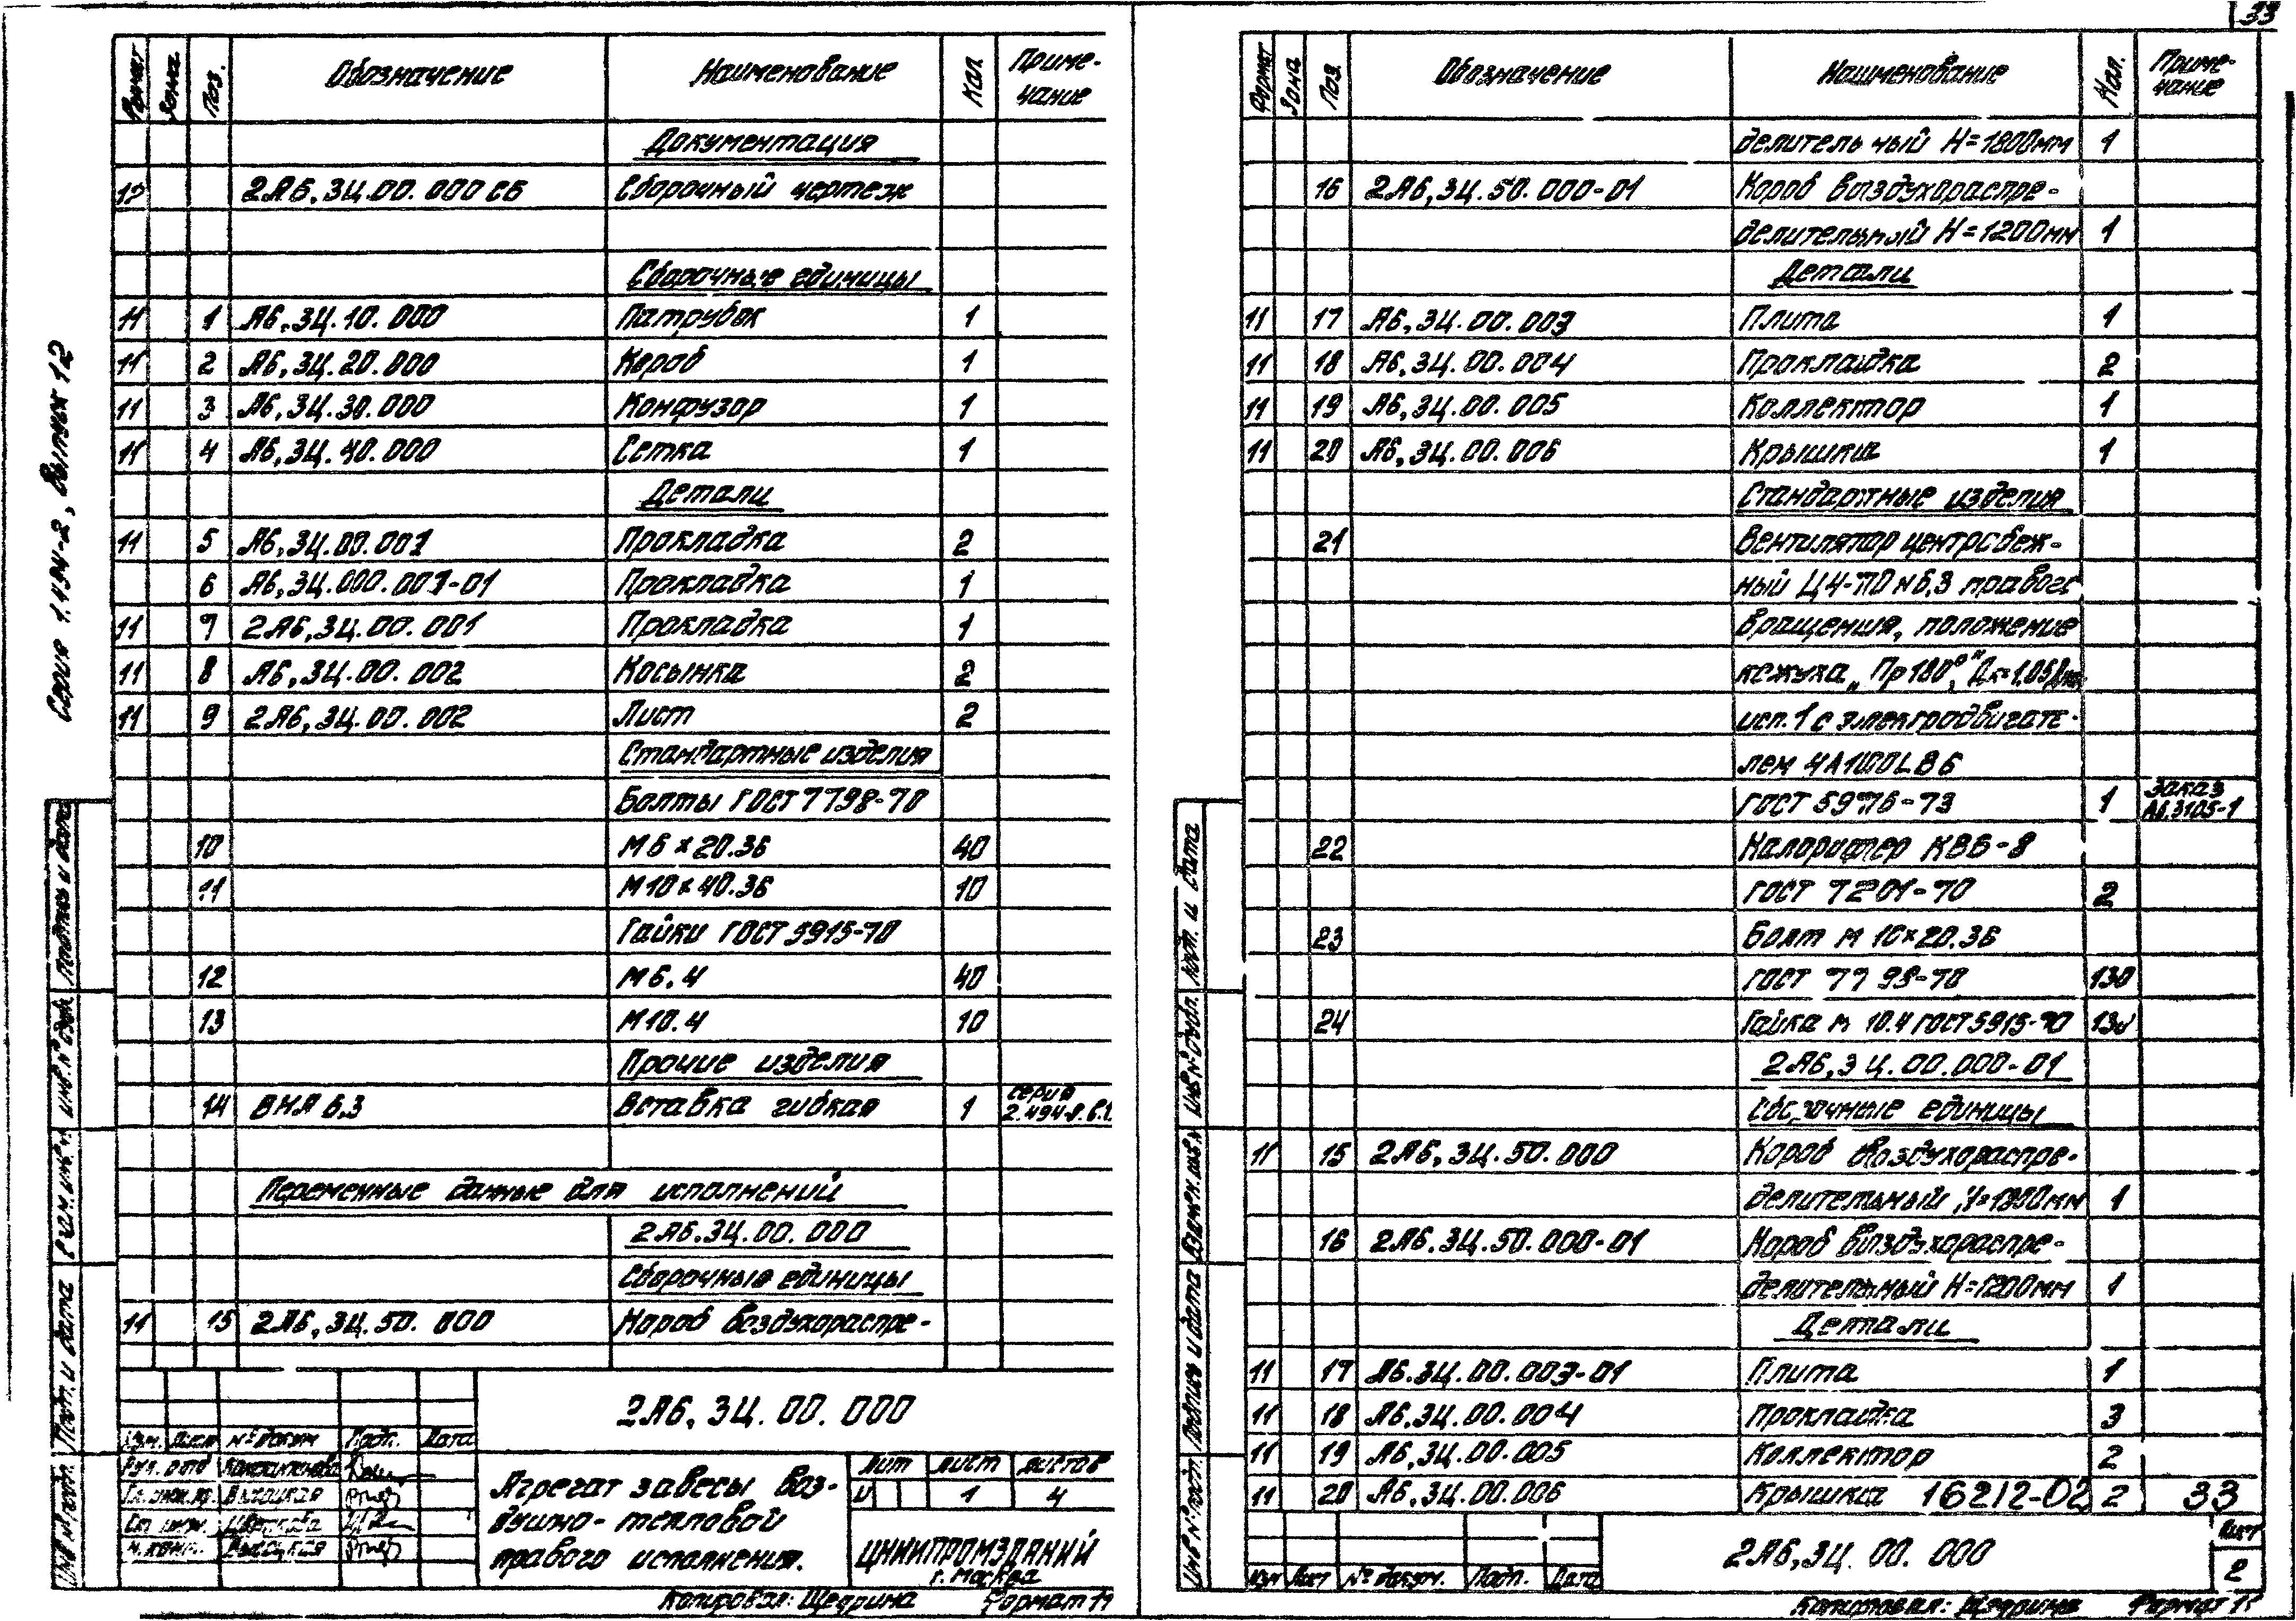 33
Серия 1.494-2, Выпуск 12
Формат Зона Поз. Обозначение Наименование Кол. Приме-
чание
Документация
12 2А6,3Ц.00.000СБ Сборочный чертеж
Сборочные единицы
11 1 А6,3Ц.10.000 Патрубок 1
11 2 А6,3Ц.20.000 Короб 1
11 3 А6,3Ц.30.000 Конфузор 1
11 4 А6,3Ц.40.000 Сетка 1
Детали
11 5 А6,3Ц.00.001 Прокладка 2
6 А6,3Ц.000.001-01 Прокладка 1
11 7 2А6,3Ц.00.001 Прокладка 1
11 8 А6,3Ц.00.002 Косынка 2
11 9 2А6,3Ц.00.002 Лист 2
Стандартные изделия
Болты ГОСТ 7798-70
10 М6×20.36 40
11 М10×40.36 10
Гайки ГОСТ 5915-70
12 М6.4 40
13 М10.4 10
Прочие изделия
14 ВНА 6.3 Вставка гибкая 1 серия
2.494-8.в.1
Переменные данные для исполнений
2А6.3Ц.00.000
Сборочные единицы
11 15 2А6,3Ц.50.000 Короб воздухораспре-
2А6,3Ц.00.000
Изм. Лист № докум Подп. Дата
Рук. отд
Гл. инж. пр. Высоцкая
Ст. инж. Цветкова
Н. конт. Высоцкая
Агрегат завесы воз-
душно-тепловой
правого исполнения.
Лит Лист Листов
И 1 4
ЦНИИПРОМЗДАНИЙ
г. Москва
Копировал: Щедрина Формат 11
Подпись и дата
Инв. № дубл.
Взам. инв. №
Подп. и дата
Инв № подл.
Формат Зона Поз. Обозначение Наименование Кол. Приме-
чание
делительный Н=1800мм 1
16 2А6,3Ц.50.000-01 Короб воздухораспре-
делительный Н=1200мм 1
Детали
11 17 А6,3Ц.00.003 Плита 1
11 18 А6,3Ц.00.004 Прокладка 2
11 19 А6,3Ц.00.005 Коллектор 1
11 20 А6,3Ц.00.006 Крышка 1
Стандартные изделия
21 Вентилятор центробеж-
ный Ц4-70 №6,3 правого
вращения, положение
кожуха „Пр180°", Дк=1.05Дном
исп.1 с электродвигате-
лем 4А100LВ6
ГОСТ 5976-73 1 Заказ
А6.3105-1
22 Калорифер КВБ-8
ГОСТ 7201-70 2
23 Болт М 10×20.36
ГОСТ 7798-70 130
24 Гайка М 10.4 ГОСТ 5915-70 130
2А6,3Ц.00.000-01
Сборочные единицы
11 15 2А6,3Ц.50.000 Короб воздухораспре-
делительный Н=1800мм 1
16 2А6.3Ц.50.000-01 Короб воздухораспре-
делительный Н=1200мм 1
Детали
11 17 А6.3Ц.00.003-01 Плита 1
11 18 А6,3Ц.00.004 Прокладка 3
11 19 А6,3Ц.00.005 Коллектор 2
11 20 А6,3Ц.00.006 Крышка 16212-02 2 33
2А6,3Ц.00.000
Лист
2
Изм Лист № докум. Подп. Дата
Копировал: Щедрина Формат 11
Подп. и дата
Инв № дубл.
Взамен инв. №
Подпись и дата
Инв № подл.